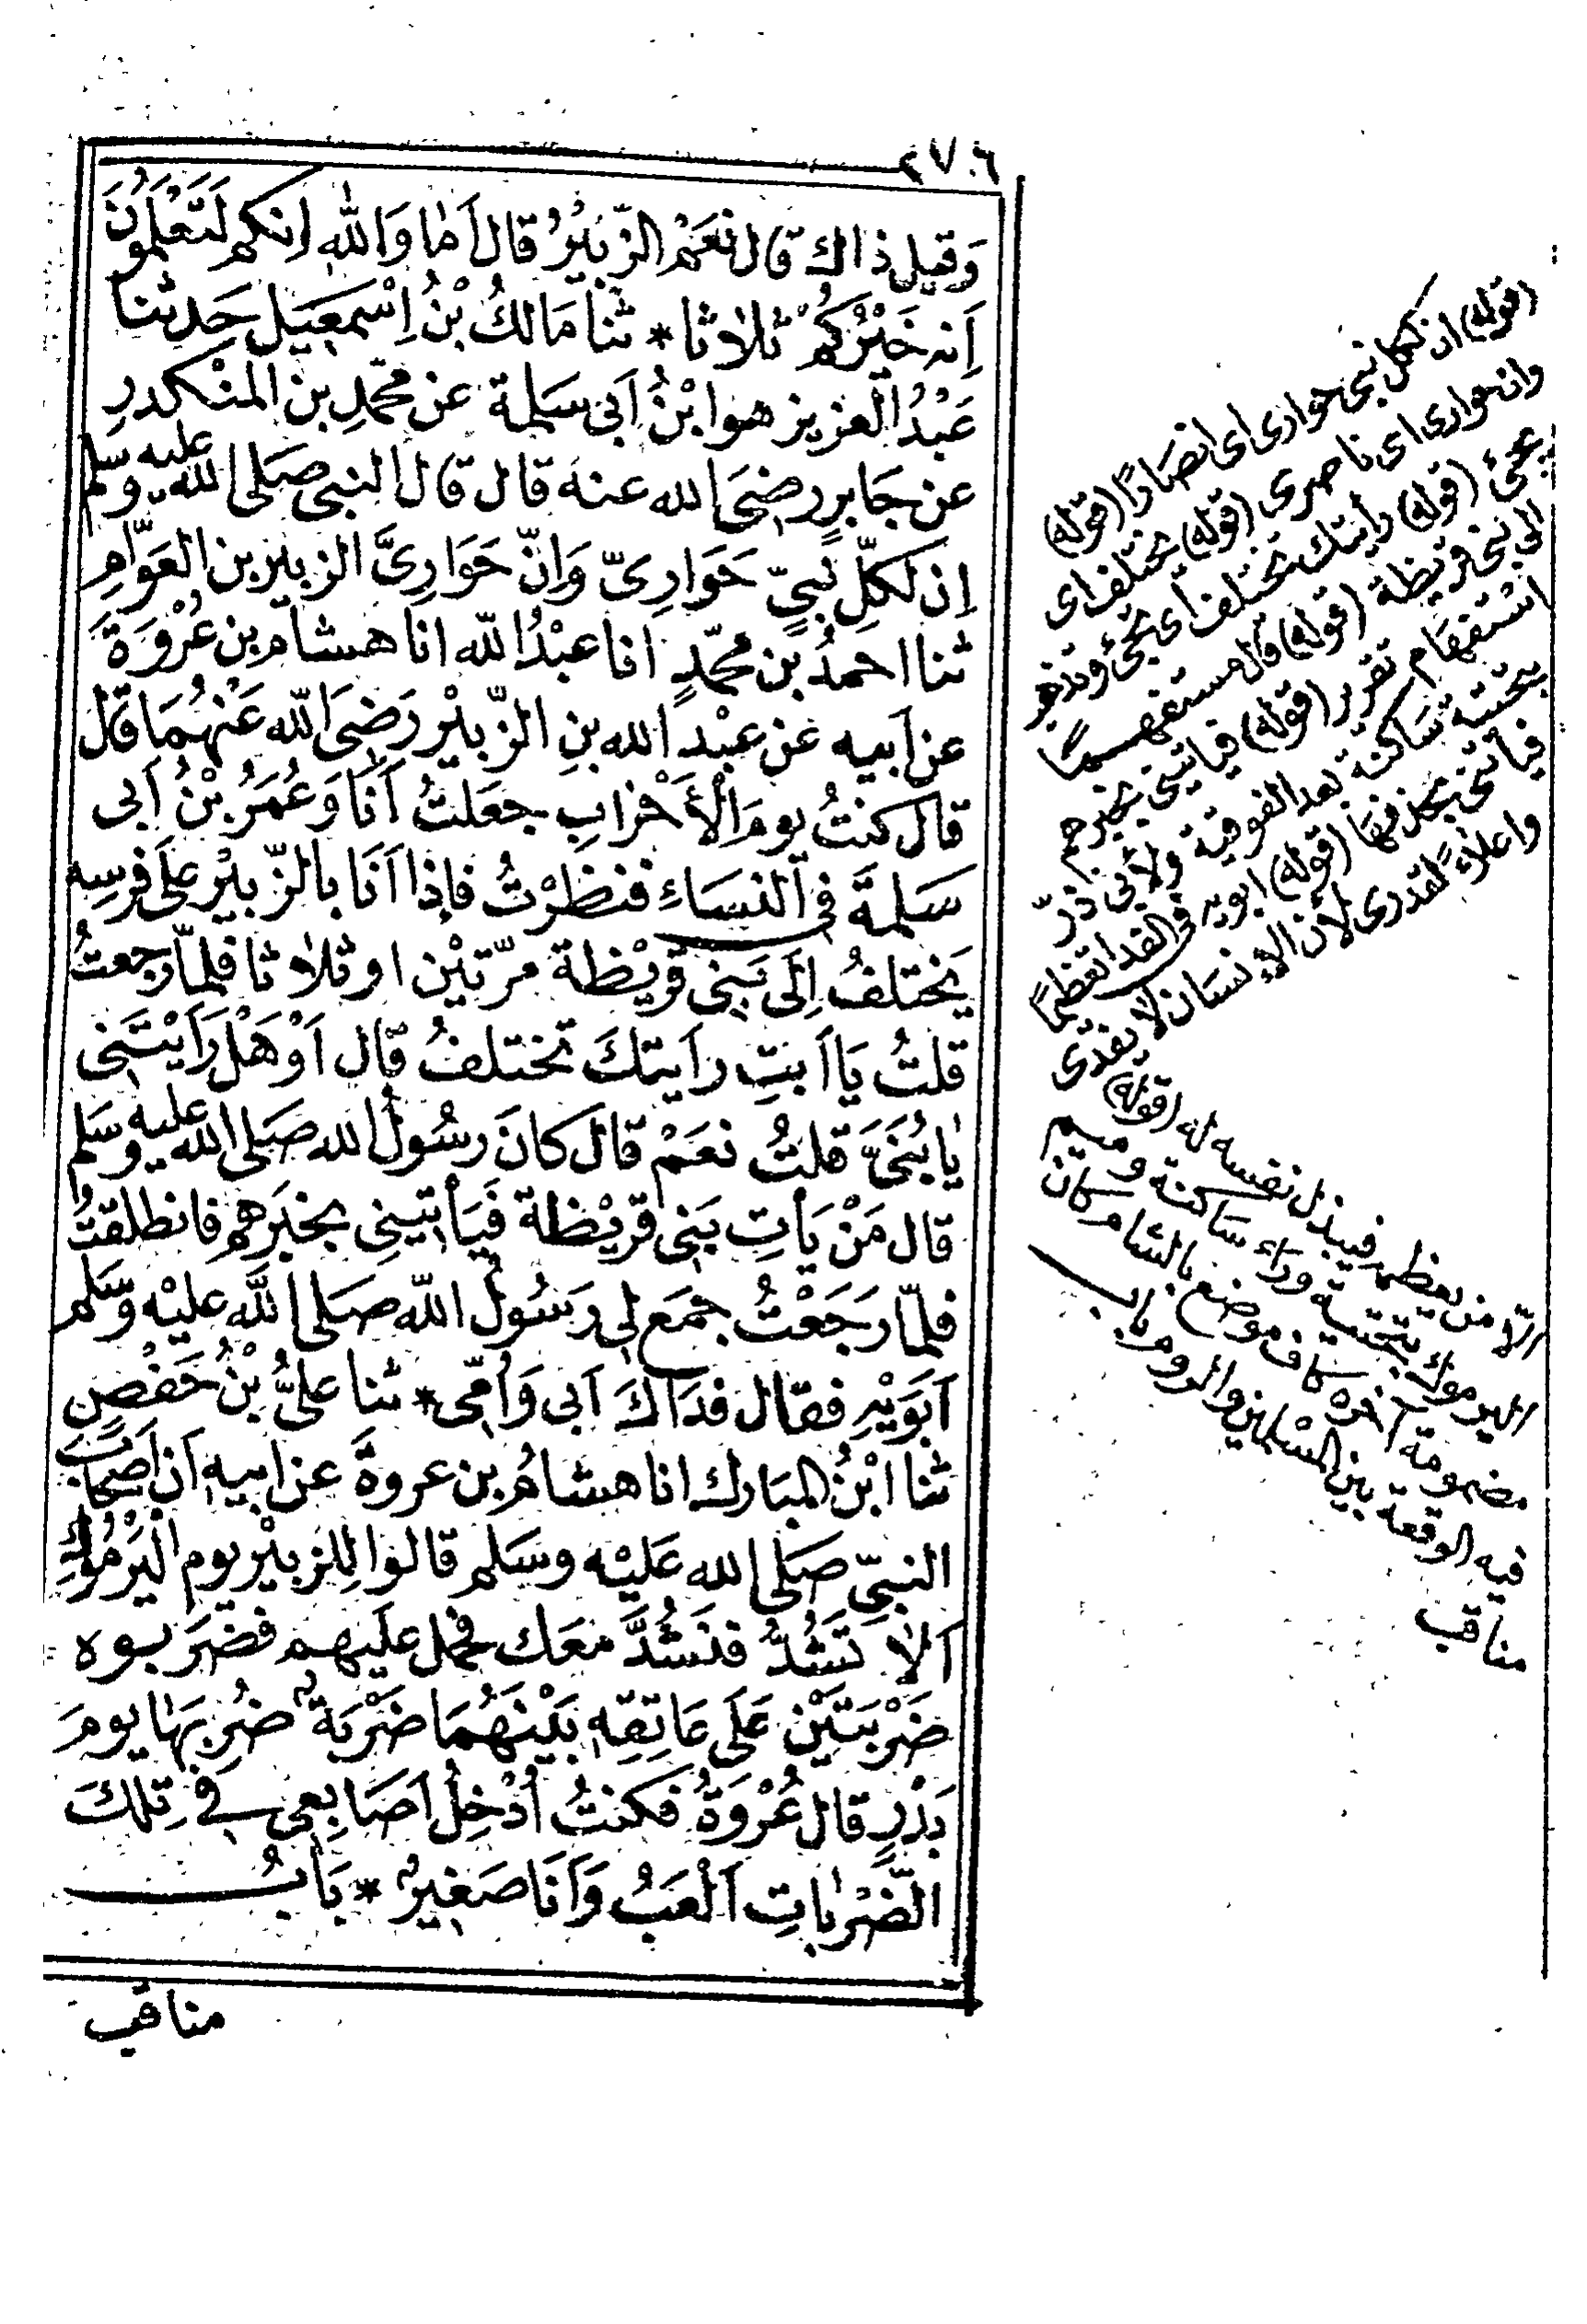 ٢٧٠٦
وَقيل ذاك قال نعَمْ الزّبَيْرُ قال أمَا وَاللهِ إنكم لَتَعْلَمُونَ
أَنه خَيْرُكُمْ ثلاثا * ثنا مَالكُ بْنُ إسْمعِيَل حَدثنا
عَبْدُ العزيز هوابْنُ أبى سَلمة عن محمّدِ بن المنْكدرِ
عن جَابرٍ رضىَ الله عنه قال قال النبى صَلى الله عليه وَسَلم
إن لكلِّ نبىٍّ حَوَارِىّ وَإنّ حَوَارِىَّ الزبيْر بن العَوّامِ
ثنا احمدُ بن محمّدٍ انا عبْدُ الله انا هشام بن عُرْوَةَ
عن أبيه عَن عبْد الله بنِ الزّبيْر رَضِىَ الله عَنْهُمَا قال
قال كنتُ يومَ الْأَحْزابِ جعَلتُ أنَا وَعُمَرُ بْنُ أبى
سَلمةَ فى النسَاءِ فنظَرْتُ فإذا أنَا بالزّبيْر عَلَى فرسِه
يَختلفُ إلَى بَنى قريْظة مرّتيْن او ثلاثا فلمّا رجعتُ
قلتُ يَا أبتِ رأيتكَ تختلفُ قال أوْ هَلْ رَأيْتَنى
يَا بُنَىَّ قلتُ نعَمْ قالَ كانَ رسُولُ الله صَلى الله عليه وسَلم
قال مَنْ يَأتِ بَنى قريْظة فيَأتينِى بخبَرِهم فانطلقتُ
فلمّا رَجَعْتُ جمَع لى رَسُولُ الله صَلى الله عليْه وَسَلم
أبَوَيْهِ فقال فدَاكَ أبى وَأمّى * ثنا علىُّ بْنُ حَفْصٍ
ثنا ابْنُ المبَارك انا هشامُ بن عروةَ عن ابيه أن أصحَابَ
النبىّ صَلى الله عَليْه وسَلم قالوا للزبيْر يوم اليَرْمُوكِ
ألَا تَشُدُّ فنَشُدَّ معَك فحمل علَيهم فضَرَبوه
ضَرْبَتَيْن عَلَى عَاتِقِه بَيْنَهُمَا ضَرْبَةٌ ضُرِبَهَا يومَ
بَدْرٍ قال عُرْوَةُ فكنتُ أُدْخِلُ أصَابِعِى فى تِلكَ
الضّرَبَاتِ ألْعَبُ وَأنَا صَغيرٌ * بَابُ
مناقب
(قوله) ان لكل نبى حوارى اى انصارًا (قوله)
وان حوارى اى ناصرى (قوله) يختلف اى
يجئ (قوله) رايتك تختلف اى تجئ وتذهب
الى بنى قريظة (قوله) قال مستفهمًا
استفهام تقرير (قوله) فيأتينى بخبرهم
بتحتية ساكنة بعد الفوقية ولابى ذرّ
فيأتنى بحذفها (قوله) ابويه فى الفداء تعظيمًا
واعلاءً لقدرى لأن الإنسان لا يفدى
الّا من يعظمه فيبذل نفسه له (قوله)
اليرموك بتحتية وراء ساكنة وميم
مضمومة آخره كاف موضع بالشام كان
فيه الوقعة بين المسْلمين والروم باب
مناقب